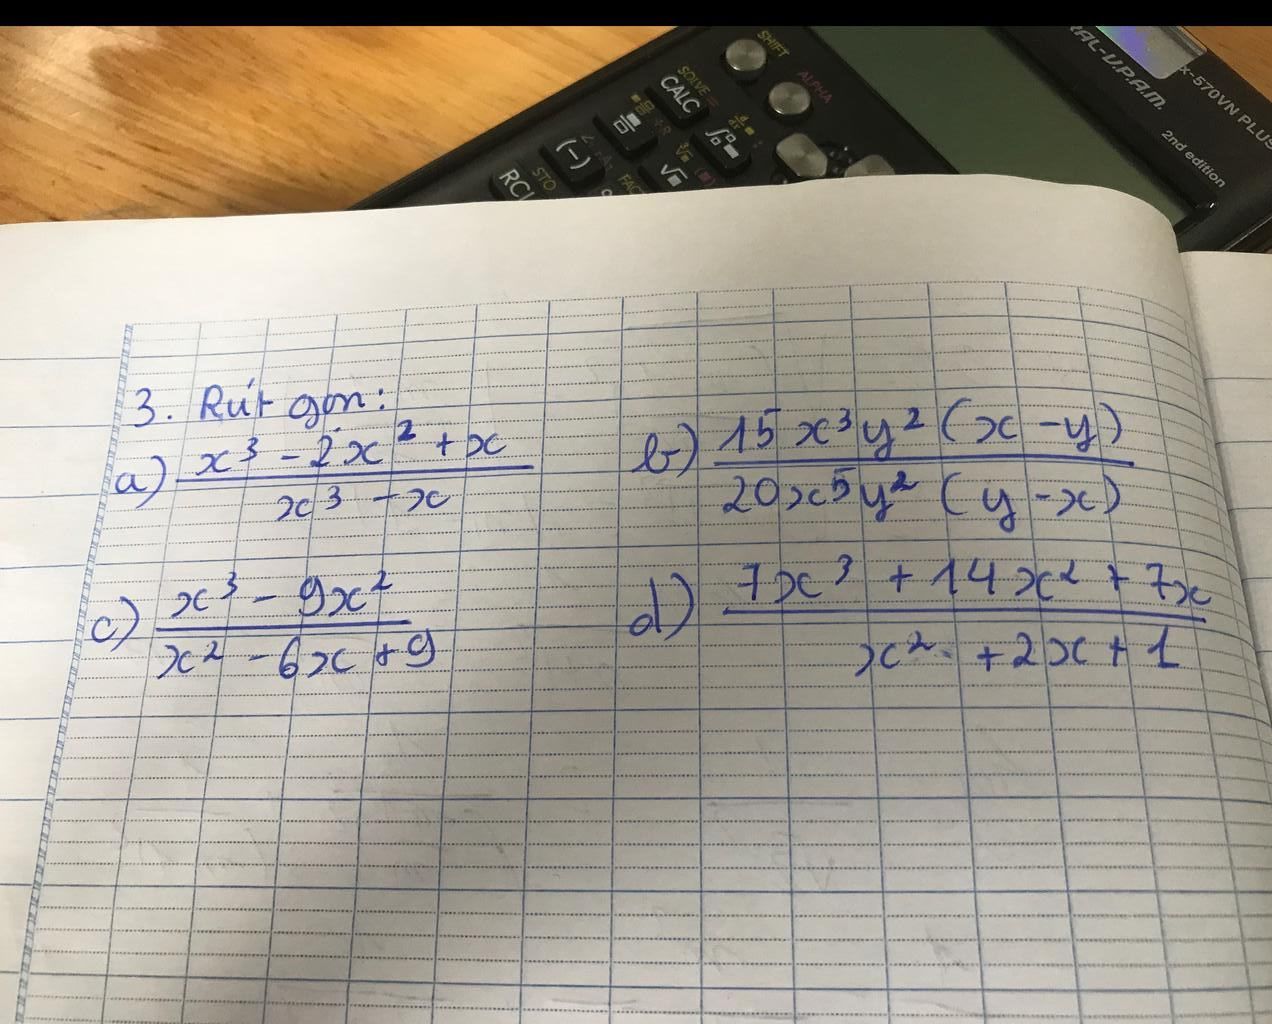 SHIFT
ALPHA
SOLVE =
CALC
(-)
STO
RCL
FAC
RAL-V.P.A.M.
X-570VN PLUS
2nd edition
3. Rút gọn:
a) \frac{x³ - 2x² + x}{x³ - x}
b) \frac{15x³y² (x - y)}{20x⁵y² (y - x)}
c) \frac{x³ - 9x²}{x² - 6x + 9}
d) \frac{7x³ + 14x² + 7x}{x² + 2x + 1}